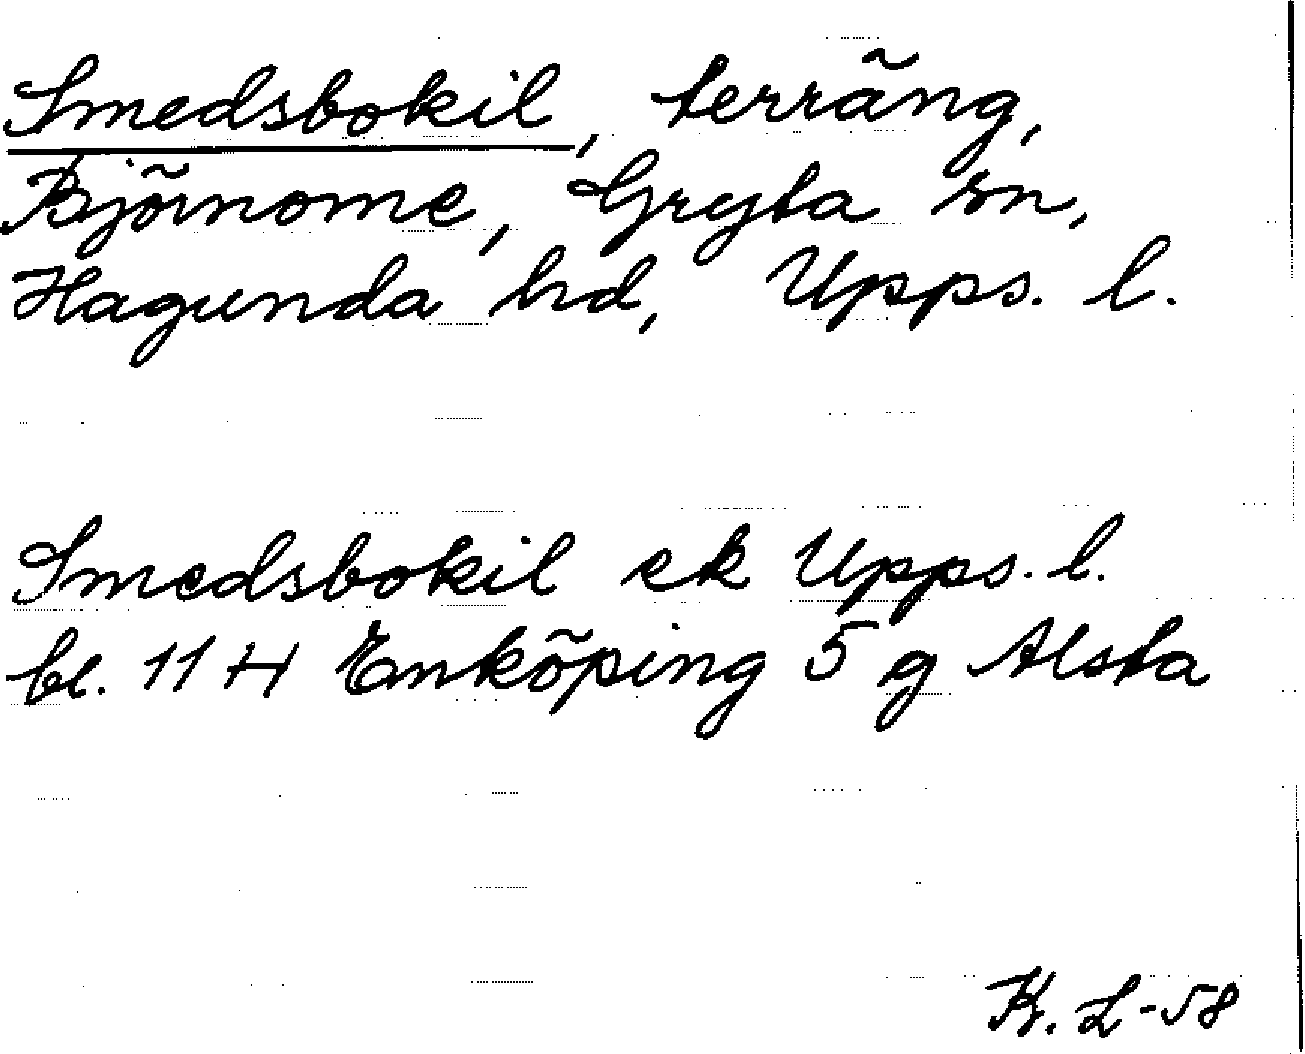 Smedsbokil, terräng,
Björnome, Gryta sn,
Hagunda hd, Upps. l.
Smedsbokil ek Upps. l.
bl. 11 H Enköping 5 g Alsta
K. L-58